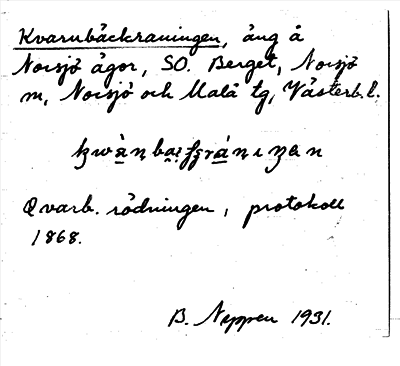 Kvarnbäckraningen, äng å
Norsjö ägor, SO. Berget, Norsjö
m, Norsjö och Malå tg, Västerb. l.
Qvarb. rödningen, protokoll
1868.
B. Neppen 1931.